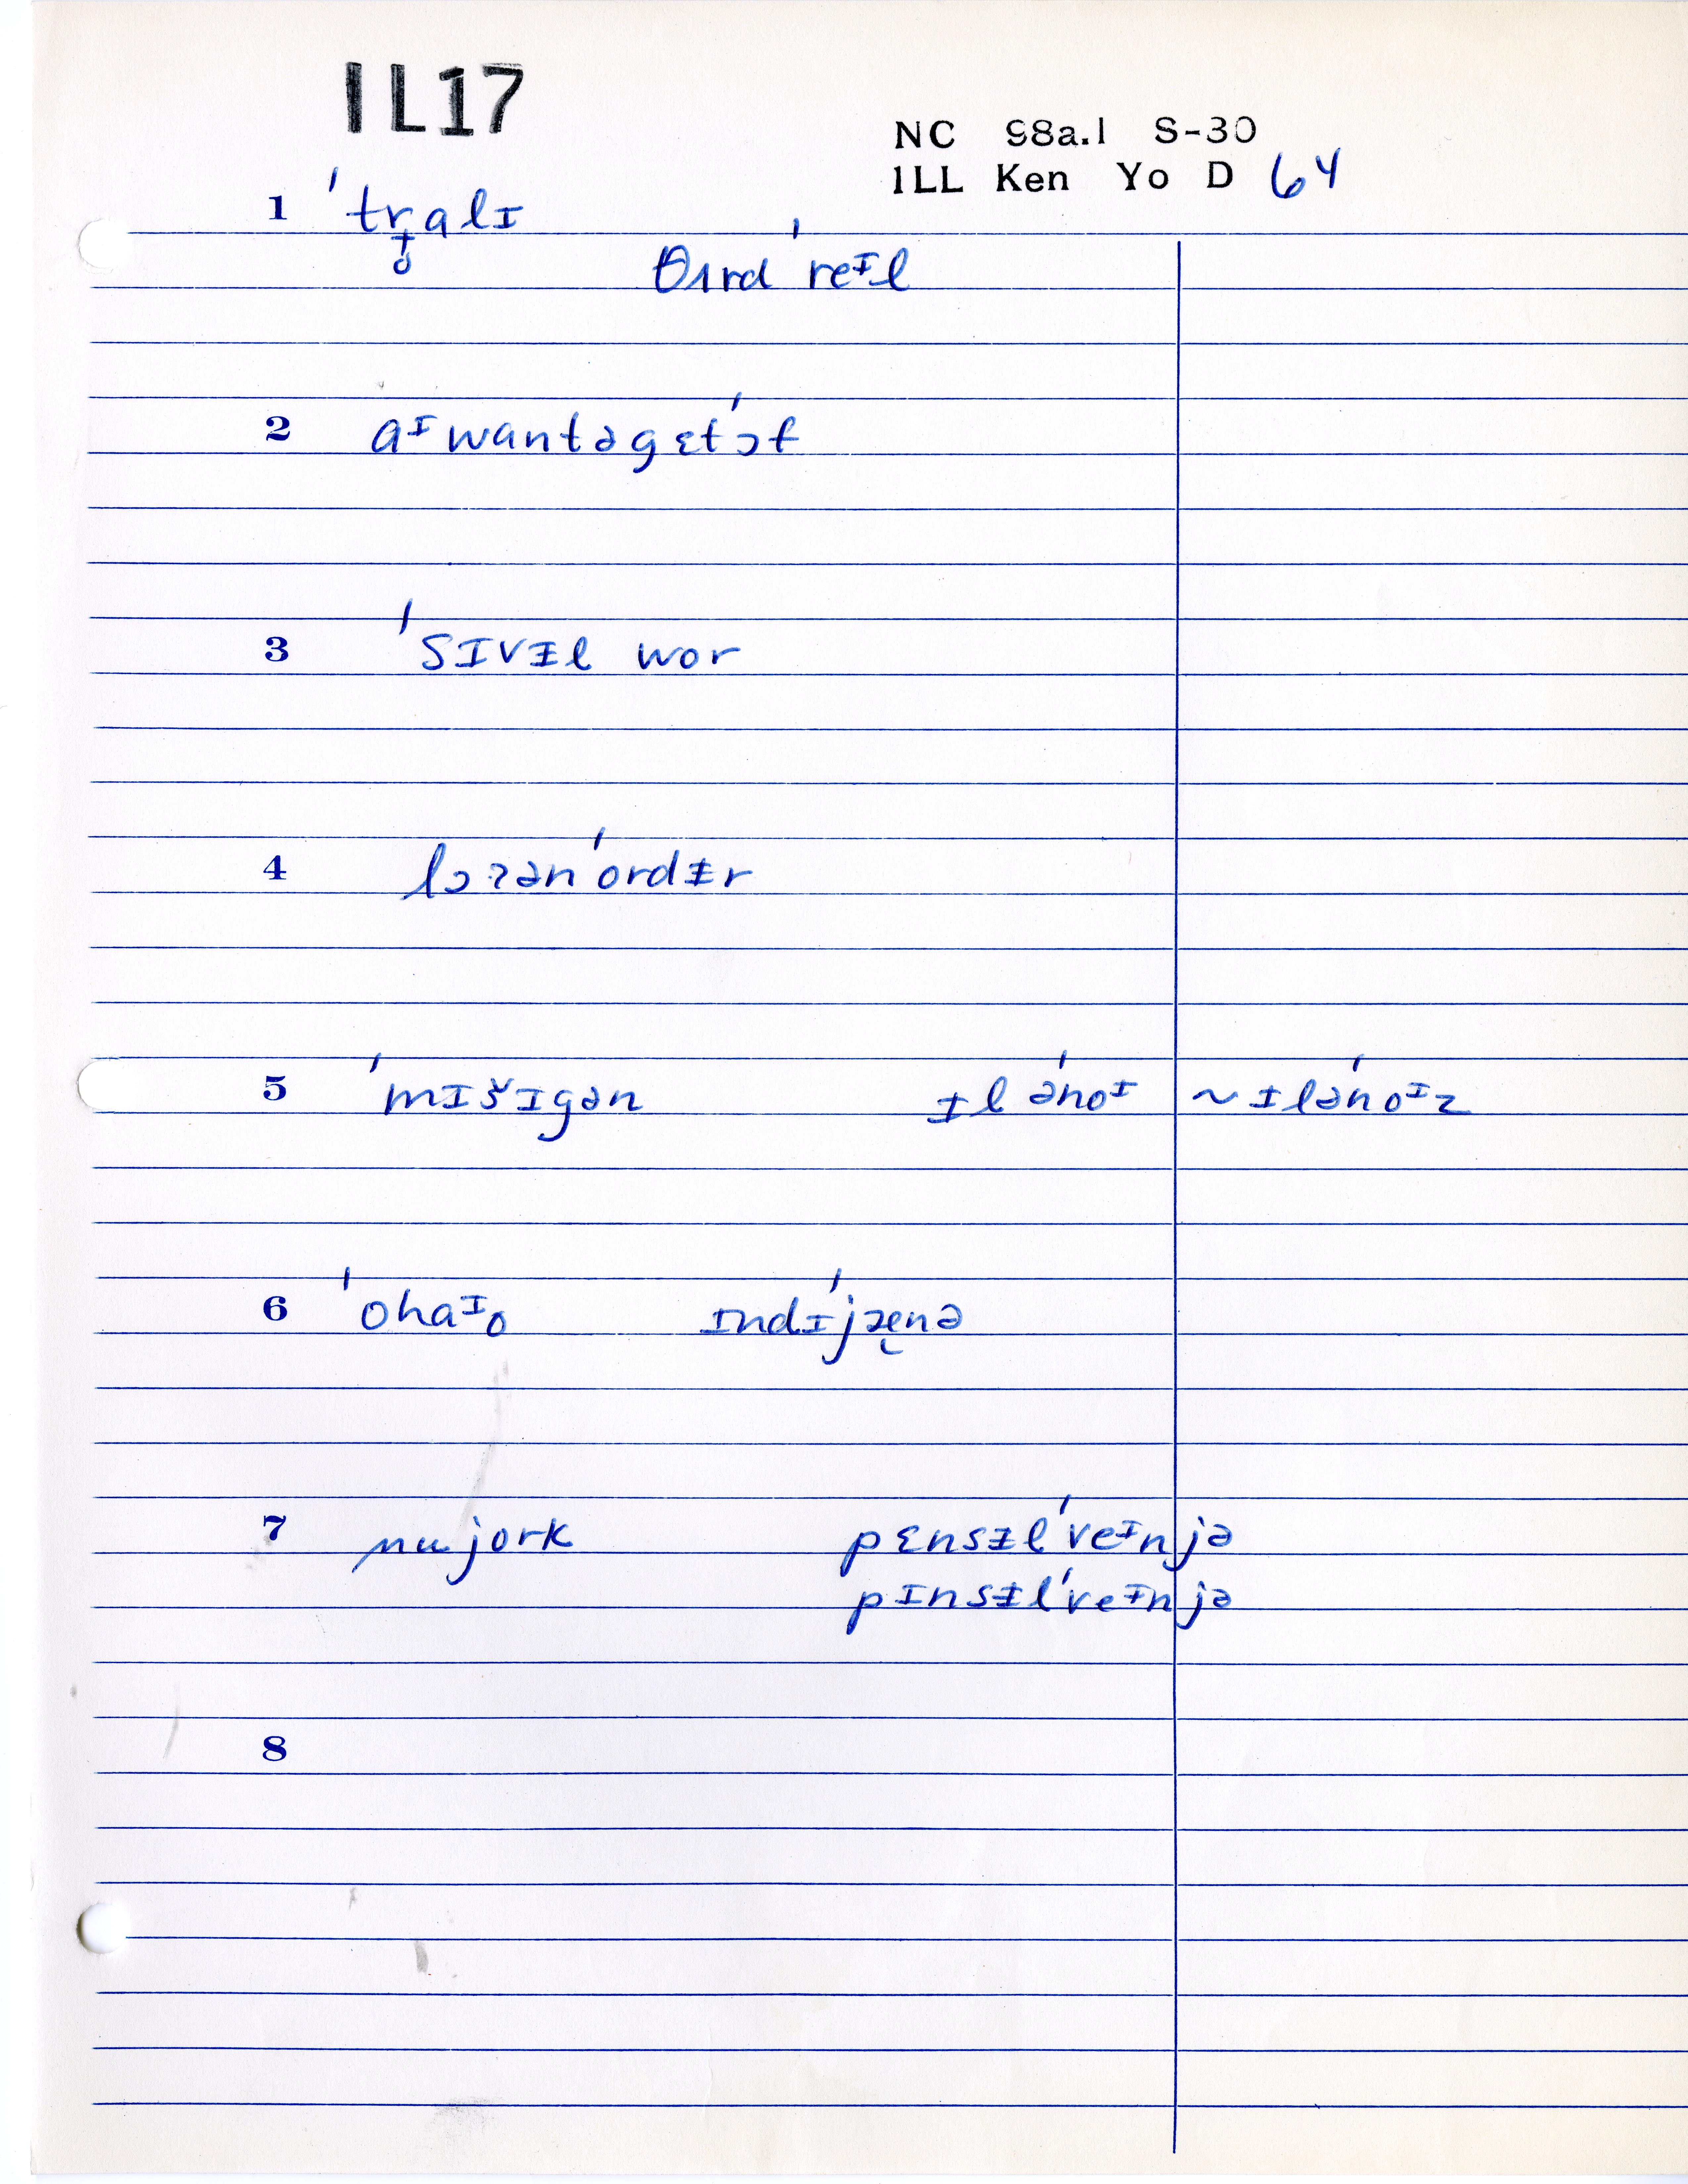 IL17
NC 98a.1 S-30
ILL Ken Yo D 64
1 ˈtr̝̥alɪ
θɪrdˈreᶤl
2 aᶤwantəgɛtˈɔf
3 ˈsɪvᵻl wor
4 lɔrənˈordᵻr
5 ˈmɪšɪgən ɪləˈnoɪ ~ ɪləˈnoɪz
6 ˈohaɪo ɪndɪˈjæ̨nə
7 nujork pɛnsᵻlˈveᶤnjə
pɪnsᵻlˈveᶤnjə
8